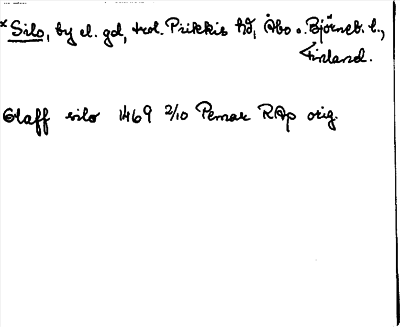 * Silo, by el. gd, trol. Piikkis hd, Åbo o. Björneb. l.,
Finland.
Olaff silo 1469 2/10 Pemar RAp orig.